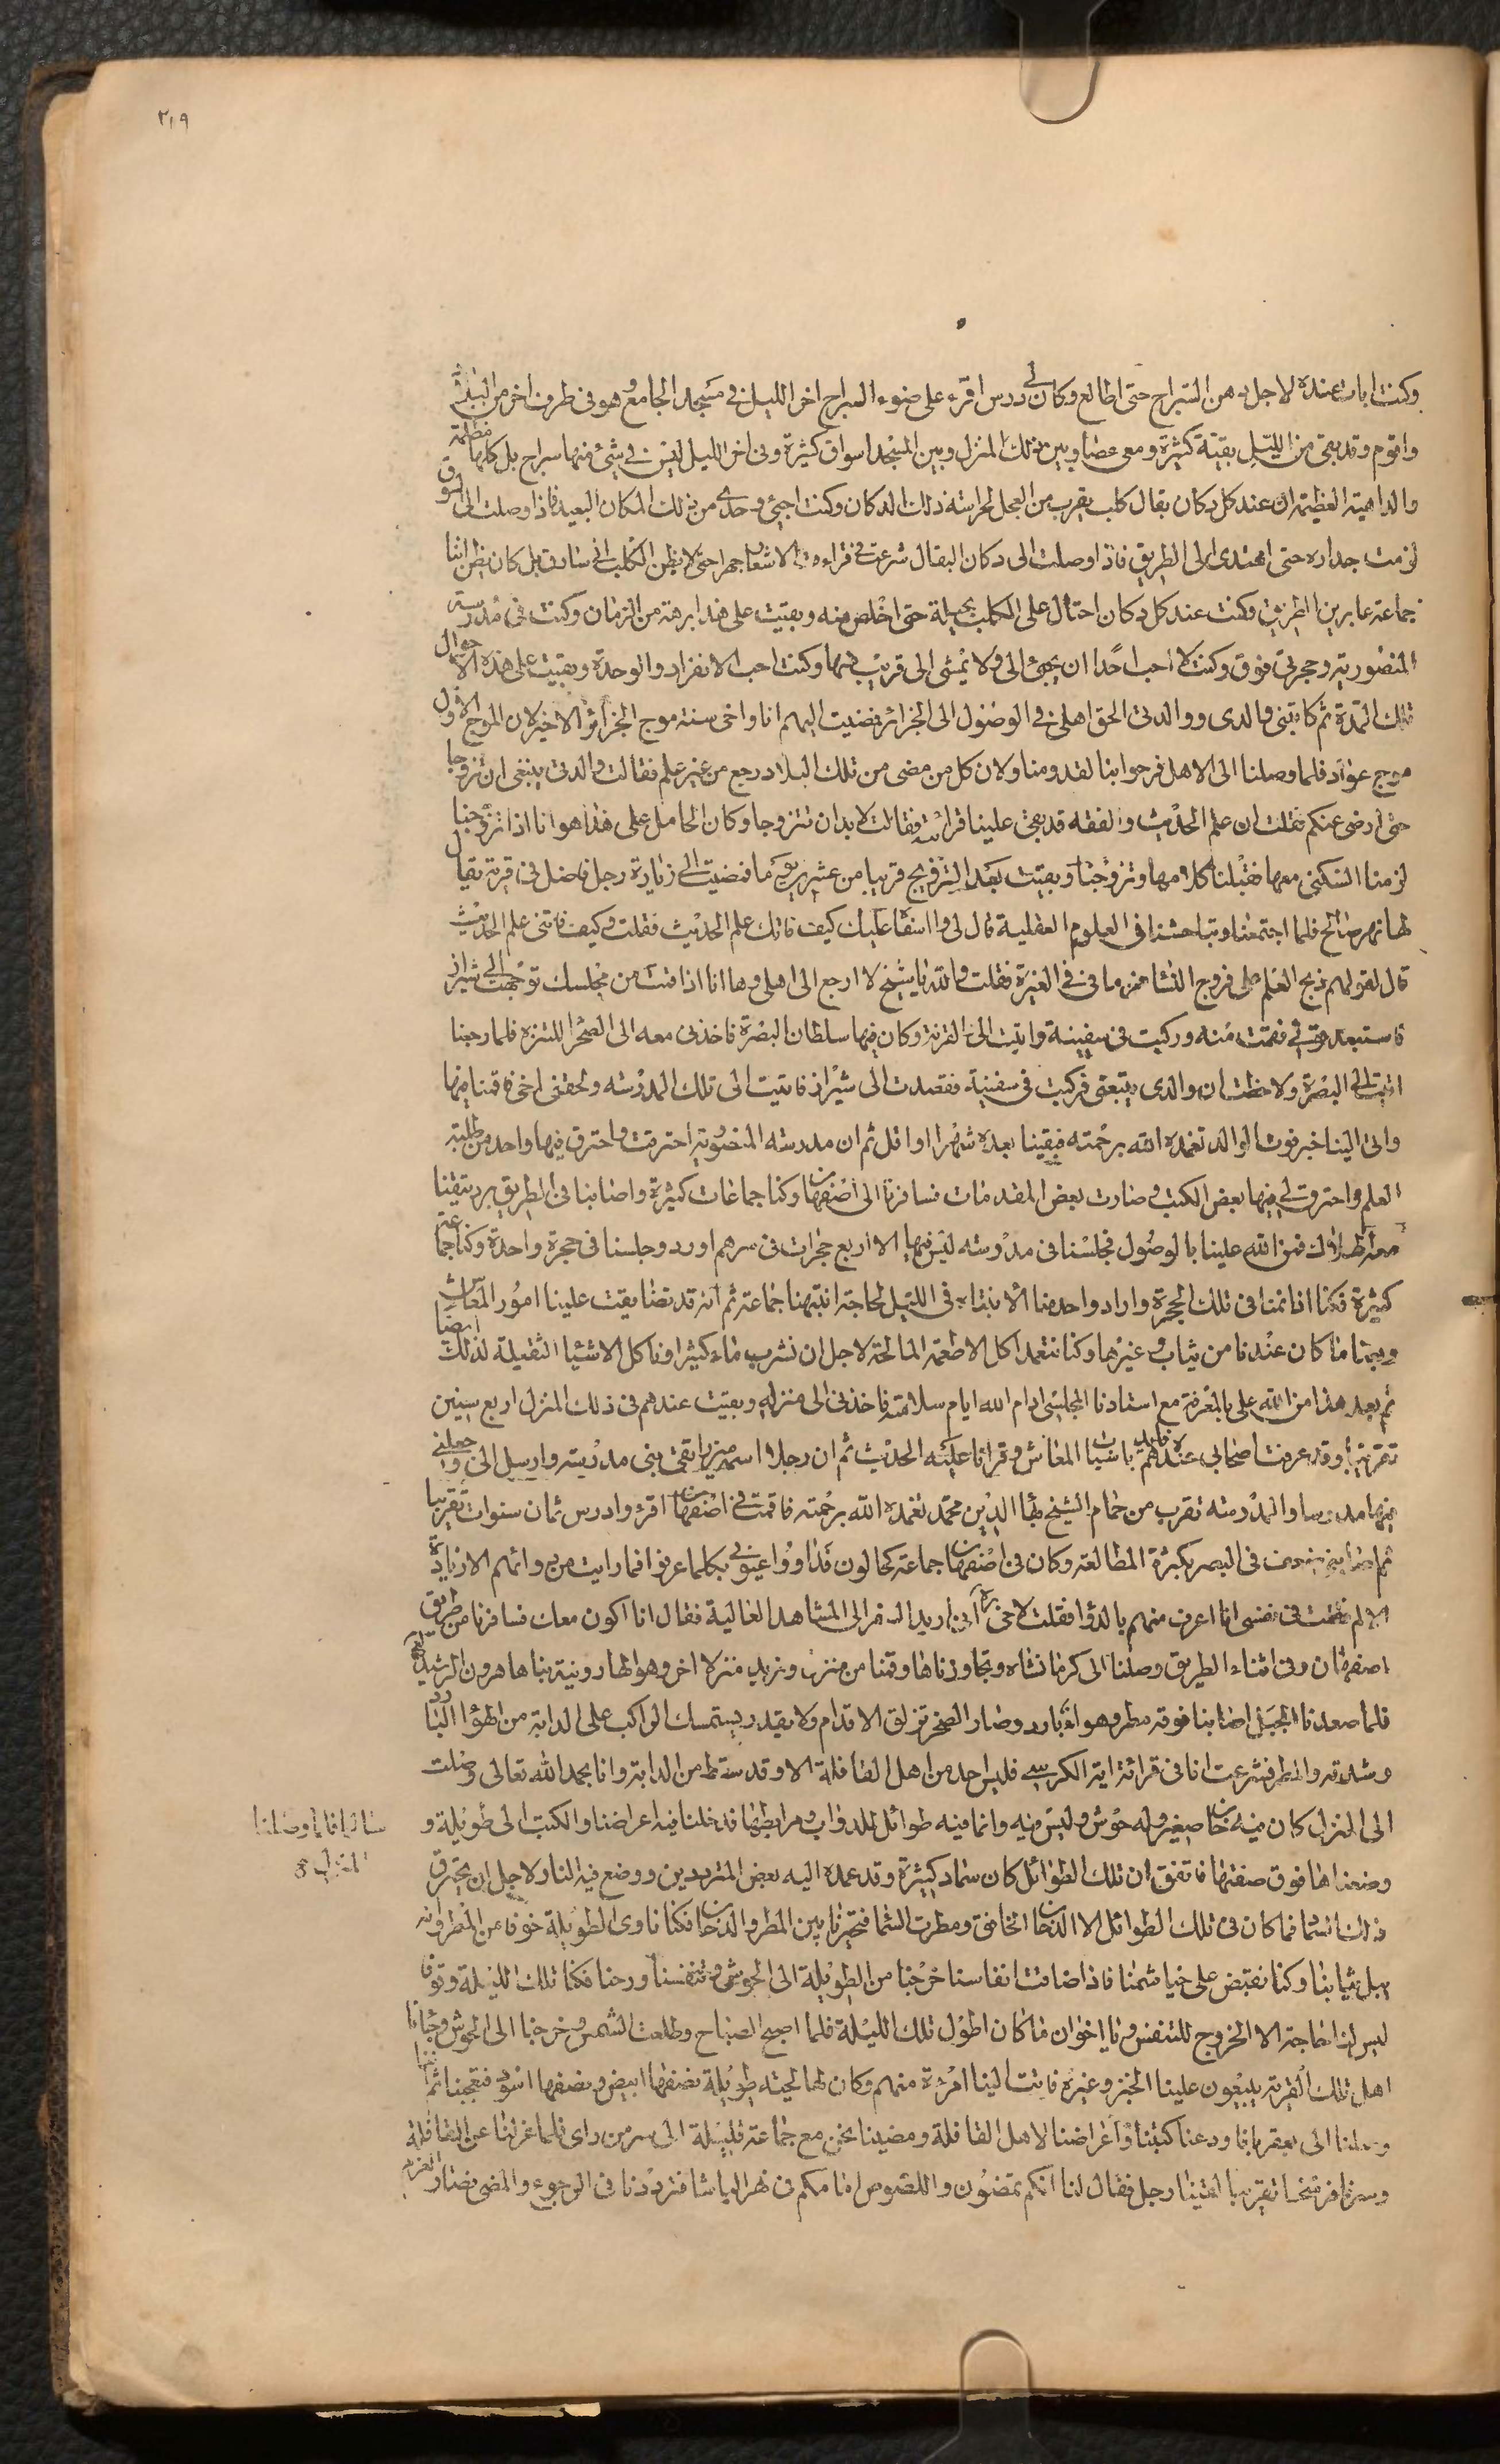 ٢١٩
وكنت ابات عنده لاجل دهن السراج حتى اطالع وكان لي درس اقرء على ضوء السراج اخر الليل في مسجد الجامع وهو في طرف اخر من البلد
واقوم وقد بقي من الليل بقية كثيرة ومعي عصا وبين ذلك المنزل وبين المسجد اسواق كثيرة وفي اخر الليل ليس في شيء منها سراج بل كلها مظلمة
والداهية العظيمة ان عند كل دكان بقال كلب يقرب من العجل لحراسة ذلك الدكان وكنت اجيء وحدي من ذلك المكان البعيد فاذا وصلت الى السوق
لزمت جداره حتى اهتدي الى الطريق فاذا وصلت الى دكان البقال شرعت في قراءة الاشعار جهرا حتى لا يظن الكلب اني سارق بل كان يظن اننا
جماعة عابرين الطريق وكنت عند كل دكان احتال على الكلب بحيلة حتى اخلص منه وبقيت على هذا برهة من الزمان وكنت في مدرسة
المنصورية وحجرتي فوق وكنت لا احب احدا ان يجيء الي ولا يمشي الى قريب منها وكنت احب الانفراد والوحدة وبقيت على هذه الاحوال
تلك المدة ثم كاتبني والدي ووالدتي الحق اهلي في الوصول الى الجزائر فمضيت اليهم انا واخي سنة موج الجزائر الاخير لان الموج الاول
موج عواد فلما وصلنا الى الاهل فرحوا بنا لقدومنا ولان كل من مضى من تلك البلاد رجع من غير علم فقالت والدتي ينبغي ان تزوجا
حتى ارضى عنكم فقلت ان علم الحديث والفقه قد بقي علينا قرائته فقالت لا بد ان تتزوجا وكان الحامل على هذا هو انا اذا تزوجنا
لزمنا السكنى معها فقبلنا كلامها وتزوجنا وبقيت بعد التزويج قريبا من عشرين يوما فمضيت الى زيارة رجل فاضل في قرية يقال
لها نهر صالح فلما اجتمعنا وتباحثنا في العلوم العقلية قال لي وا اسفا عليك كيف فاتك علم الحديث فقلت وكيف فاتني علم الحديث
قال لقولهم ذبح العلم على فروج النساء فهزمافي في الغيرة فقلت والله يا شيخ لا ارجع الى اهلي وها انا اذا قمت من مجلسك توجهت الى شيراز
فاستبعد قولي فقمت منه وركبت في سفينة واتيت الى القرنة وكان فيها سلطان البصرة فاخذني معه الى الصحرا للتنزه فلما رجعنا
اتيت الى البصرة ولاحظت ان والدي يتبعني فركبت في سفينة فقصدت الى شيراز فاتيت الى تلك المدرسة ولحقني اخي فاقمنا فيها
واتى الينا خبر فوت الوالد تغمده الله برحمته فبقينا بعده شهرا او اقل ثم ان مدرسة المنصورية احترقت واحترق فيها واحد من طلبة
العلم واحترق لي فيها بعض الكتب وصارت بعض المقدمات فسافرنا الى اصفهان وكنا جماعات كثيرة واصابنا في الطريق برد تيقنا
معه الهلاك فمن الله علينا بالوصول فجلسنا في مدرسة ليس فيها الا اربع حجرات في سرهم اورد وجلسنا في حجرة واحدة وكنا جماعة
كثيرة فكنا اذا نمنا في تلك الحجرة واراد واحد منا الانتباه في الليل لحاجة انتبهنا جماعة ثم انه قد تضايقت علينا امور المعاش
وبعنا ما كان عندنا من ثياب وغيرها وكنا نتعمد اكل الاطعمة المالحة لاجل ان نشرب ماء كثيرا وناكل الاشياء الثقيلة لذلك ايضا
ثم بعد هذا من الله علي بالمعرفة مع استادنا المجلسي ادام الله ايام سلامته فاخذني الى منزله وبقيت عندهم في ذلك المنزل اربع سنين
تقريبا وقد عرفت اصحابي عنده فامدهم باسباب المعاش وقرانا عليه الحديث ثم ان رجلا اسمه ميرزا تقي بنى مدرسة وارسل الي وجعلني
فيها مدرسا والمدرسة تقرب من حمام الشيخ بهاء الدين محمد تغمده الله برحمته فاقمت في اصفهان اقرء وادرس ثمان سنوات تقريبا
ثم اصابني ضعف في البصر بكثرة المطالعة وكان في اصفهان جماعة كحالون فداووا عيوني بكلما عرفوا فما رايت من دوائهم الا زيادة
الالم فقلت في نفسي انا اعرف منهم بالدوا فقلت لاخي ره اني اريد السفر الى المشاهد العالية فقال انا اكون معك فسافرنا من طريق
اصفهان وفي اثناء الطريق وصلنا الى كرمانشاه وتجاوزناها وقمنا من منزل ونريد منزلا اخر وهو الهارونية بناها هرون الرشيد لعنه
فلما صعدنا الجبل اصابنا فوقه مطر وهواء بارد وصار الصخر تزلق الاقدام ولا يقدر يستمسك الراكب على الدابة من الهوا البارد
وشدته والمطر فشرعت انا في قرائة اية الكرسي فليس احد من اهل القافلة الا وقد سقط من الدابة وانا بحمد الله تعالى وصلت
سالما فلما وصلنا المنزل صح
الى المنزل كان فيه خان صغير وله حوش وليس فيه وانما فيه طوائل للدواب ومرابطها فدخلنا فيه اغراضنا والكتب الى طويلة و
وضعناها فوق صفتها فاتفق ان تلك الطوائل كان سماد كثيرة وقد عمد اليه بعض المترددين ووضع فيه النار لاجل ان يحترق
ذلك السماد فما كان في تلك الطوائل الا الدخان الخانق ومطرت السماء فتحيرنا بين المطر والدخان فكنا ناوي الطويلة خوفا من المطر وانه
يبل ثيابنا وكنا نقبض على خياشمنا فاذا ضاقت انفاسنا خرجنا من الطويلة الى الحوش وتنفسنا ورحنا فكنا تلك الليلة وقوفا
ليس لنا حاجة الا الخروج للتنفس فيا اخوان ما كان اطول تلك الليلة فلما اصبح الصباح وطلعت الشمس خرجنا الى الحوش وجاءنا
اهل تلك القرية يبيعون علينا الخبز وغيره فاتت الينا امرءة منهم وكان لها لحية طويلة نصفها ابيض ونصفها اسود فتعجبنا منها ثم
وصلنا الى يعقوبا فاودعنا كتبنا واغراضنا لاهل القافلة ومضينا نحن مع جماعة قليلة الى سر من راى فلما عزلنا عن القافلة
وسرنا فرسخا تقريبا لقينا رجل فقال لنا انكم تمضون واللصوص امامكم في نهر الباشا فترددنا في الرجوع والمضي فصار العزم